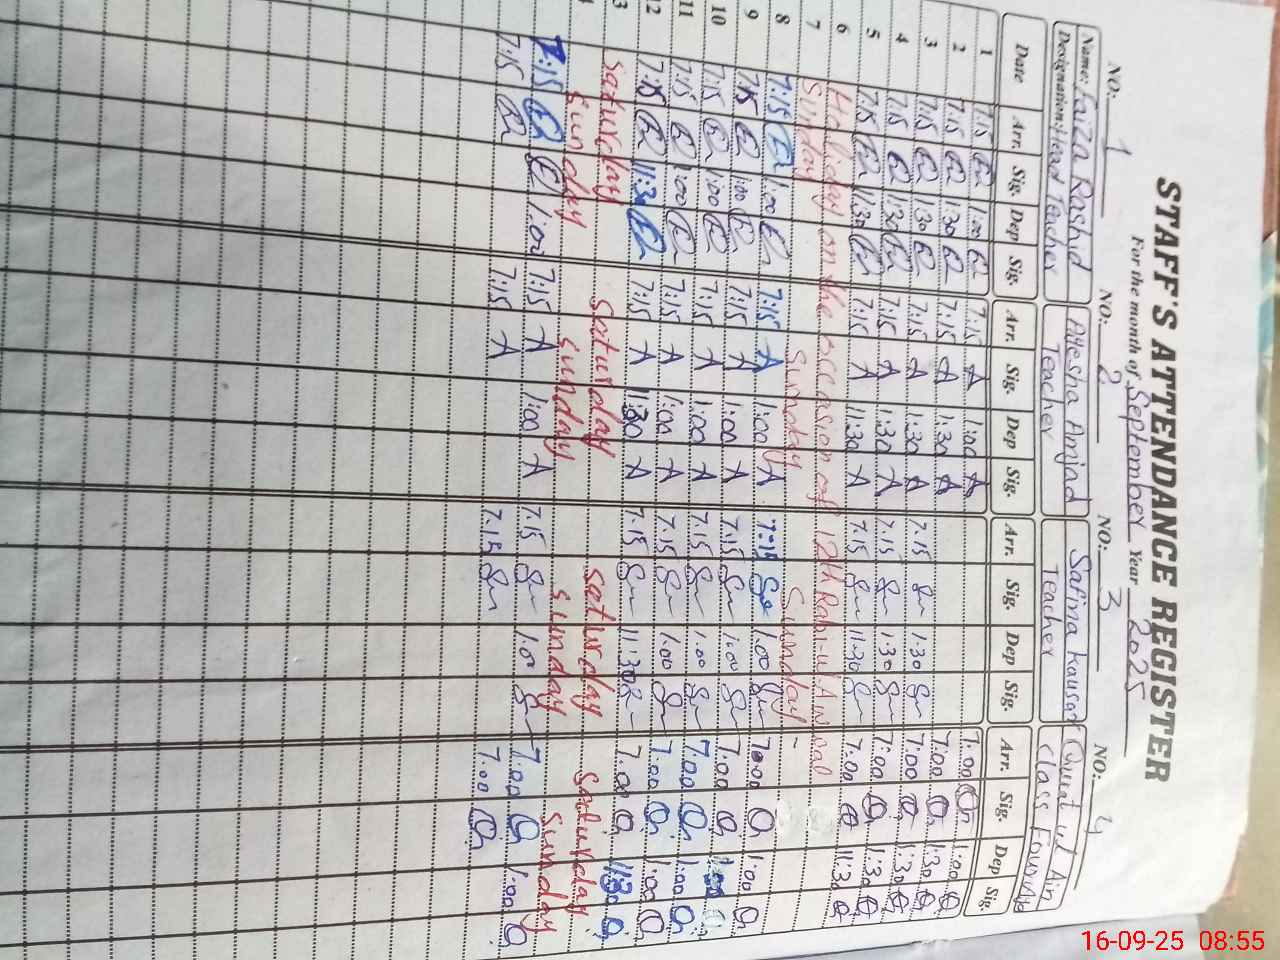 STAFF'S ATTENDANCE REGISTER
For the month of September Year 2025
NO: 1 NO: 2 NO: 3 NO: 4
Name: Faiza Rashid Ayesha Amjad Safina kausar Qurat ul Ain
Designation: Head Teacher Teacher Teacher Class Four
Date Arr. Sig. Dep Sig. Arr. Sig. Dep Sig. Arr. Sig. Dep Sig Arr. Sig. Dep Sig.
1 7:15 1:00 7:15 A 1:00 A 7:00 1:00
2 7:15 1:30 7:15 A 1:30 A 7:00 1:30
3 7:15 1:30 7:15 A 1:30 A 7:15 1:30 7:00 1:30
4 7:15 1:30 7:15 A 1:30 A 7:15 1:30 7:00 1:30
5 7:15 11:30 7:15 A 11:30 A 7:15 11:30 7:00 11:30
6 Holiday on the occasion of 12th Rabi-ul Awal
7 Sunday Sunday Sunday
8 7:15 1:00 7:15 A 1:00 A 7:15 1:00 7:00 1:00
9 7:15 1:00 7:15 A 1:00 A 7:15 1:00 7:00 1:00
10 7:15 1:00 7:15 A 1:00 A 7:15 1:00 7:00 1:00
11 7:15 1:00 7:15 A 1:00 A 7:15 1:00 7:00 1:00
12 7:15 11:30 7:15 A 11:30 A 7:15 11:30 7:00 11:30
13 Saturday Saturday Saturday Saturday
Sunday Sunday Sunday Sunday
7:15 1:00 7:15 A 1:00 A 7:15 1:00 7:00 1:00
7:15 7:15 A 7:15 7:00
16-09-25 08:55